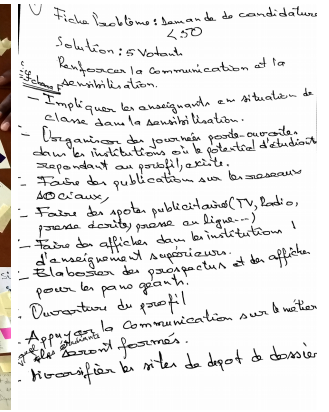 Fiche Problème : demande de candidature
< 50
Solution : 5 Votants
Renforcer la communication et la
sensibilisation.
Actions
- Impliquer les enseignants en situation de
classe dans la sensibilisation.
- Organiser des journées porte-ouvertes
dans les institutions où le potentiel d'étudiants
repondant au profil, existe.
- Faire des publication sur les reseaux
sociaux,
- Faire des spotes publicitaires (TV, Radio,
presse écrite, presse en ligne...)
- Faire des affiches dans les institutions
d'enseignement supérieurs.
- Elaborer des prospectus et des affiches
pour les pano géants.
- Ouverture du profil
- Appuyer la communication sur le métier
que les étudiants seront formés.
- Diversifier les sites de depot de dossier